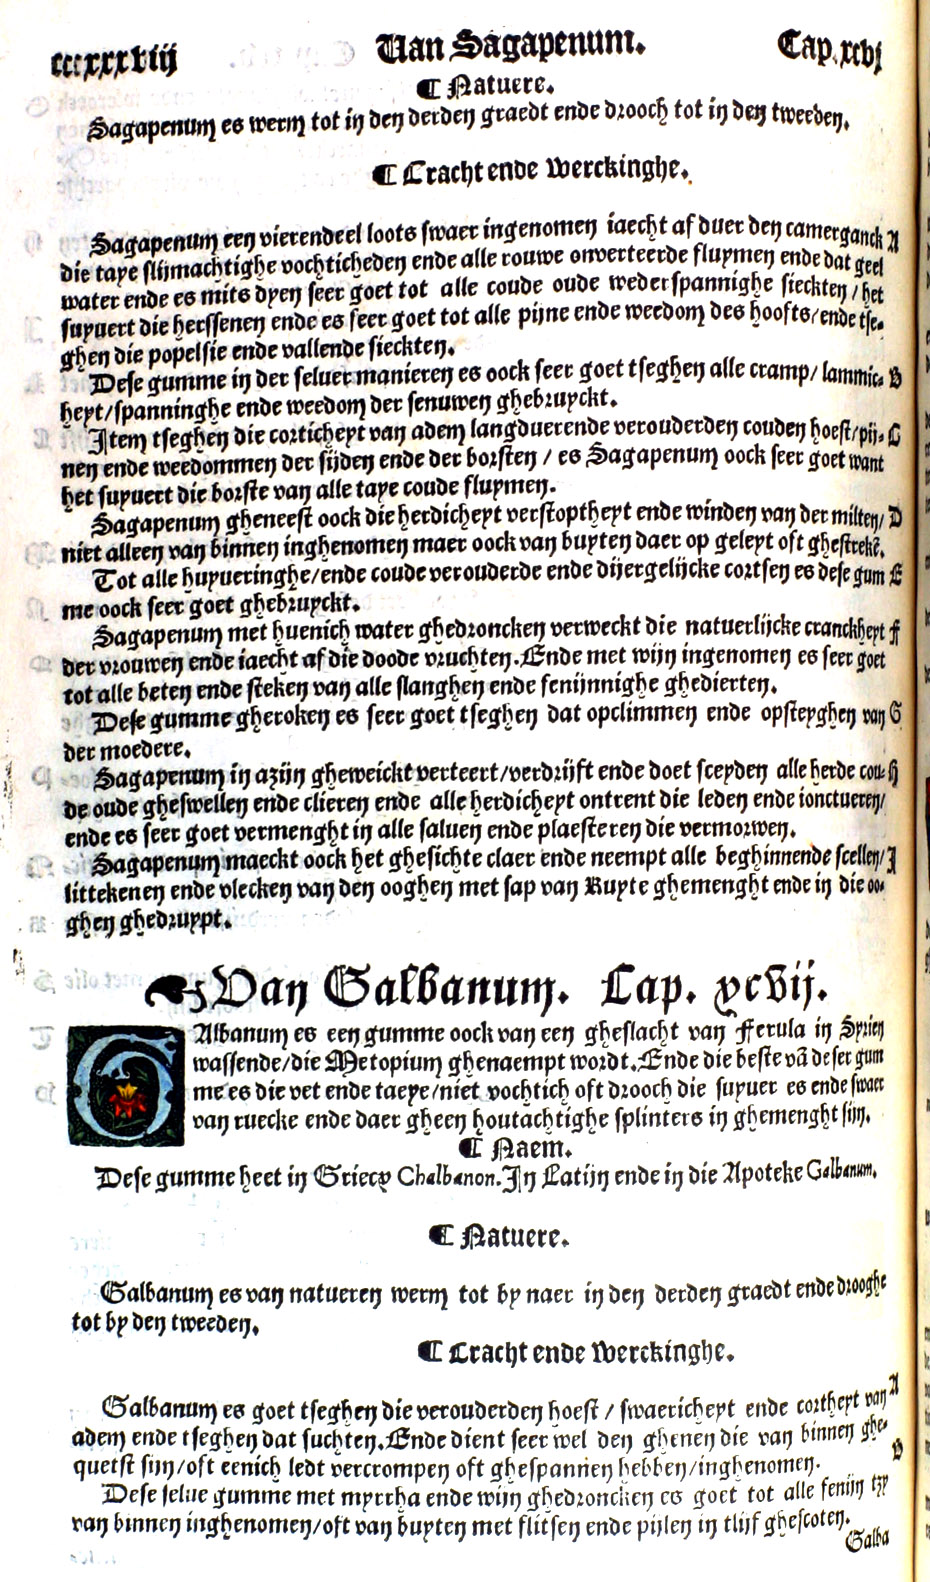 cccxxxviij Van Sagapenum. Cap.xcvj
¶ Natuere.
Sagapenum es werm tot in den derden graedt ende drooch tot in den tweeden.
¶ Cracht ende Werckinghe.
Sagapenum een vierendeel loots swaer ingenomen iaecht af duer den camerganck A
die taye slijmachtighe vochticheden ende alle rouwe onverteerde fluymen ende dat geel
water ende es mits dyen seer goet tot alle coude oude wederspannighe sieckten / het
suyvert die herssenen ende es seer goet tot alle pijne ende weedom des hoofts/ende tse-
ghen die popelsie ende vallende sieckten.
Dese gumme in der selver manieren es oock seer goet tseghen alle cramp/ lammic- B
heyt/spanninghe ende weedom der senuwen ghebruyckt.
Item tseghen die corticheyt van adem langduerende verouderden couden hoest/pij- C
nen ende weedommen der sijden ende der borsten / es Sagapenum oock seer goet want
het suyvert die borste van alle taye coude fluymen.
Sagapenum gheneest oock die herdicheyt verstoptheyt ende winden van der milten/ D
niet alleen van binnen inghenomen maer oock van buyten daer op geleyt oft ghestrekē.
Tot alle huyveringhe/ende coude verouderde ende dijergelijcke cortsen es dese gum E
me oock seer goet ghebruyckt.
Sagapenum met huenich water ghedroncken verweckt die natuerlijcke cranckheyt F
der vrouwen ende iaecht af die doode vruchten.Ende met wijn ingenomen es seer goet
tot alle beten ende steken van alle slanghen ende fenijnnighe ghedierten.
Dese gumme gheroken es seer goet tseghen dat opclimmen ende opsteyghen van G
der moedere.
Sagapenum in azijn gheweickt verteert/verdrijft ende doet sceyden alle herde cou- H
de oude gheswellen ende clieren ende alle herdicheyt ontrent die leden ende ionctueren/
ende es seer goet vermenght in alle salven ende plaesteren die vermorwen.
Sagapenum maeckt oock het ghesichte claer ende neempt alle beghinnende scellen/ I
littekenen ende vlecken van den ooghen met sap van Ruyte ghemenght ende in die oo-
ghen ghedruypt.
Van Galbanum. Cap. xcvij.
GAlbanum es een gumme oock van een gheslacht van Ferula in Syrien
wassende/die Metopium ghenaempt wordt.Ende die beste vā deser gum
me es die vet ende taeye/niet vochtich oft drooch die suyver es ende swaer
van ruecke ende daer gheen houtachtighe splinters in ghemenght sijn.
¶ Naem.
Dese gumme heet in Griecx Chalbanon.In Latijn ende in die Apoteke Galbanum.
¶ Natuere.
Galbanum es van natueren werm tot by naer in den derden graedt ende drooghe
tot by den tweeden.
¶ Cracht ende Werckinghe.
Galbanum es goet tseghen die verouderden hoest / swaericheyt ende cortheyt van A
adem ende tseghen dat suchten.Ende dient seer wel den ghenen die van binnen ghe-
quetst sijn/oft eenich ledt vercrompen oft ghespannen hebben/inghenomen. B
Dese selue gumme met myrrha ende wijn ghedroncken es goet tot alle fenijn tzy
van binnen inghenomen/oft van buyten met flitsen ende pijlen in tlijf ghescoten.
Galba